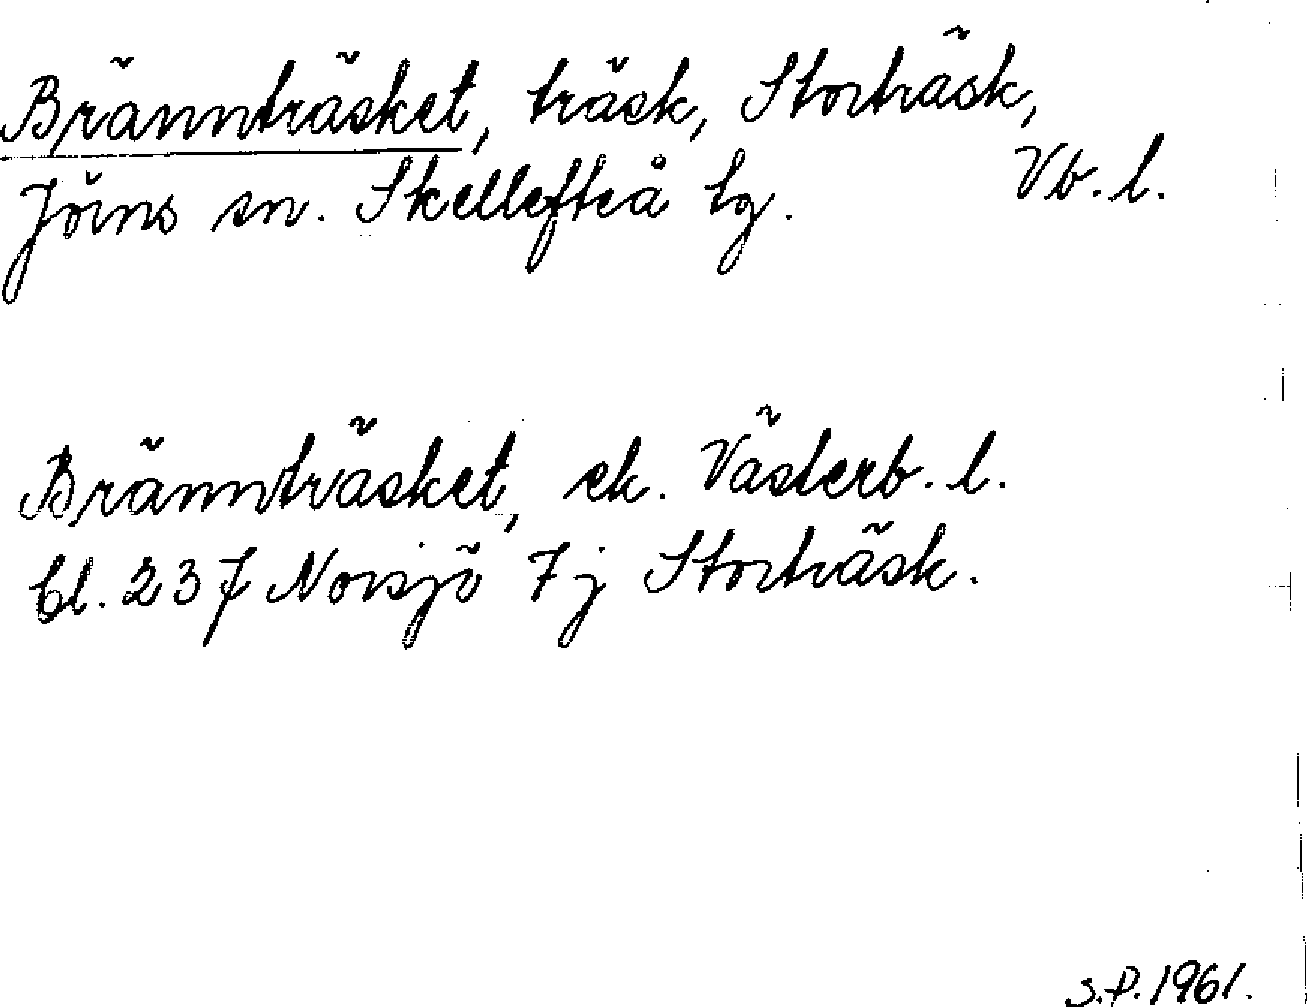 Brännträsket, träsk, Storträsk,
Jörns sn. Skellefteå tg. Vb. l.
Brännträsket, ek. Västerb. l.
bl. 237 Norsjö 7j Storträsk.
S.P. 1961.